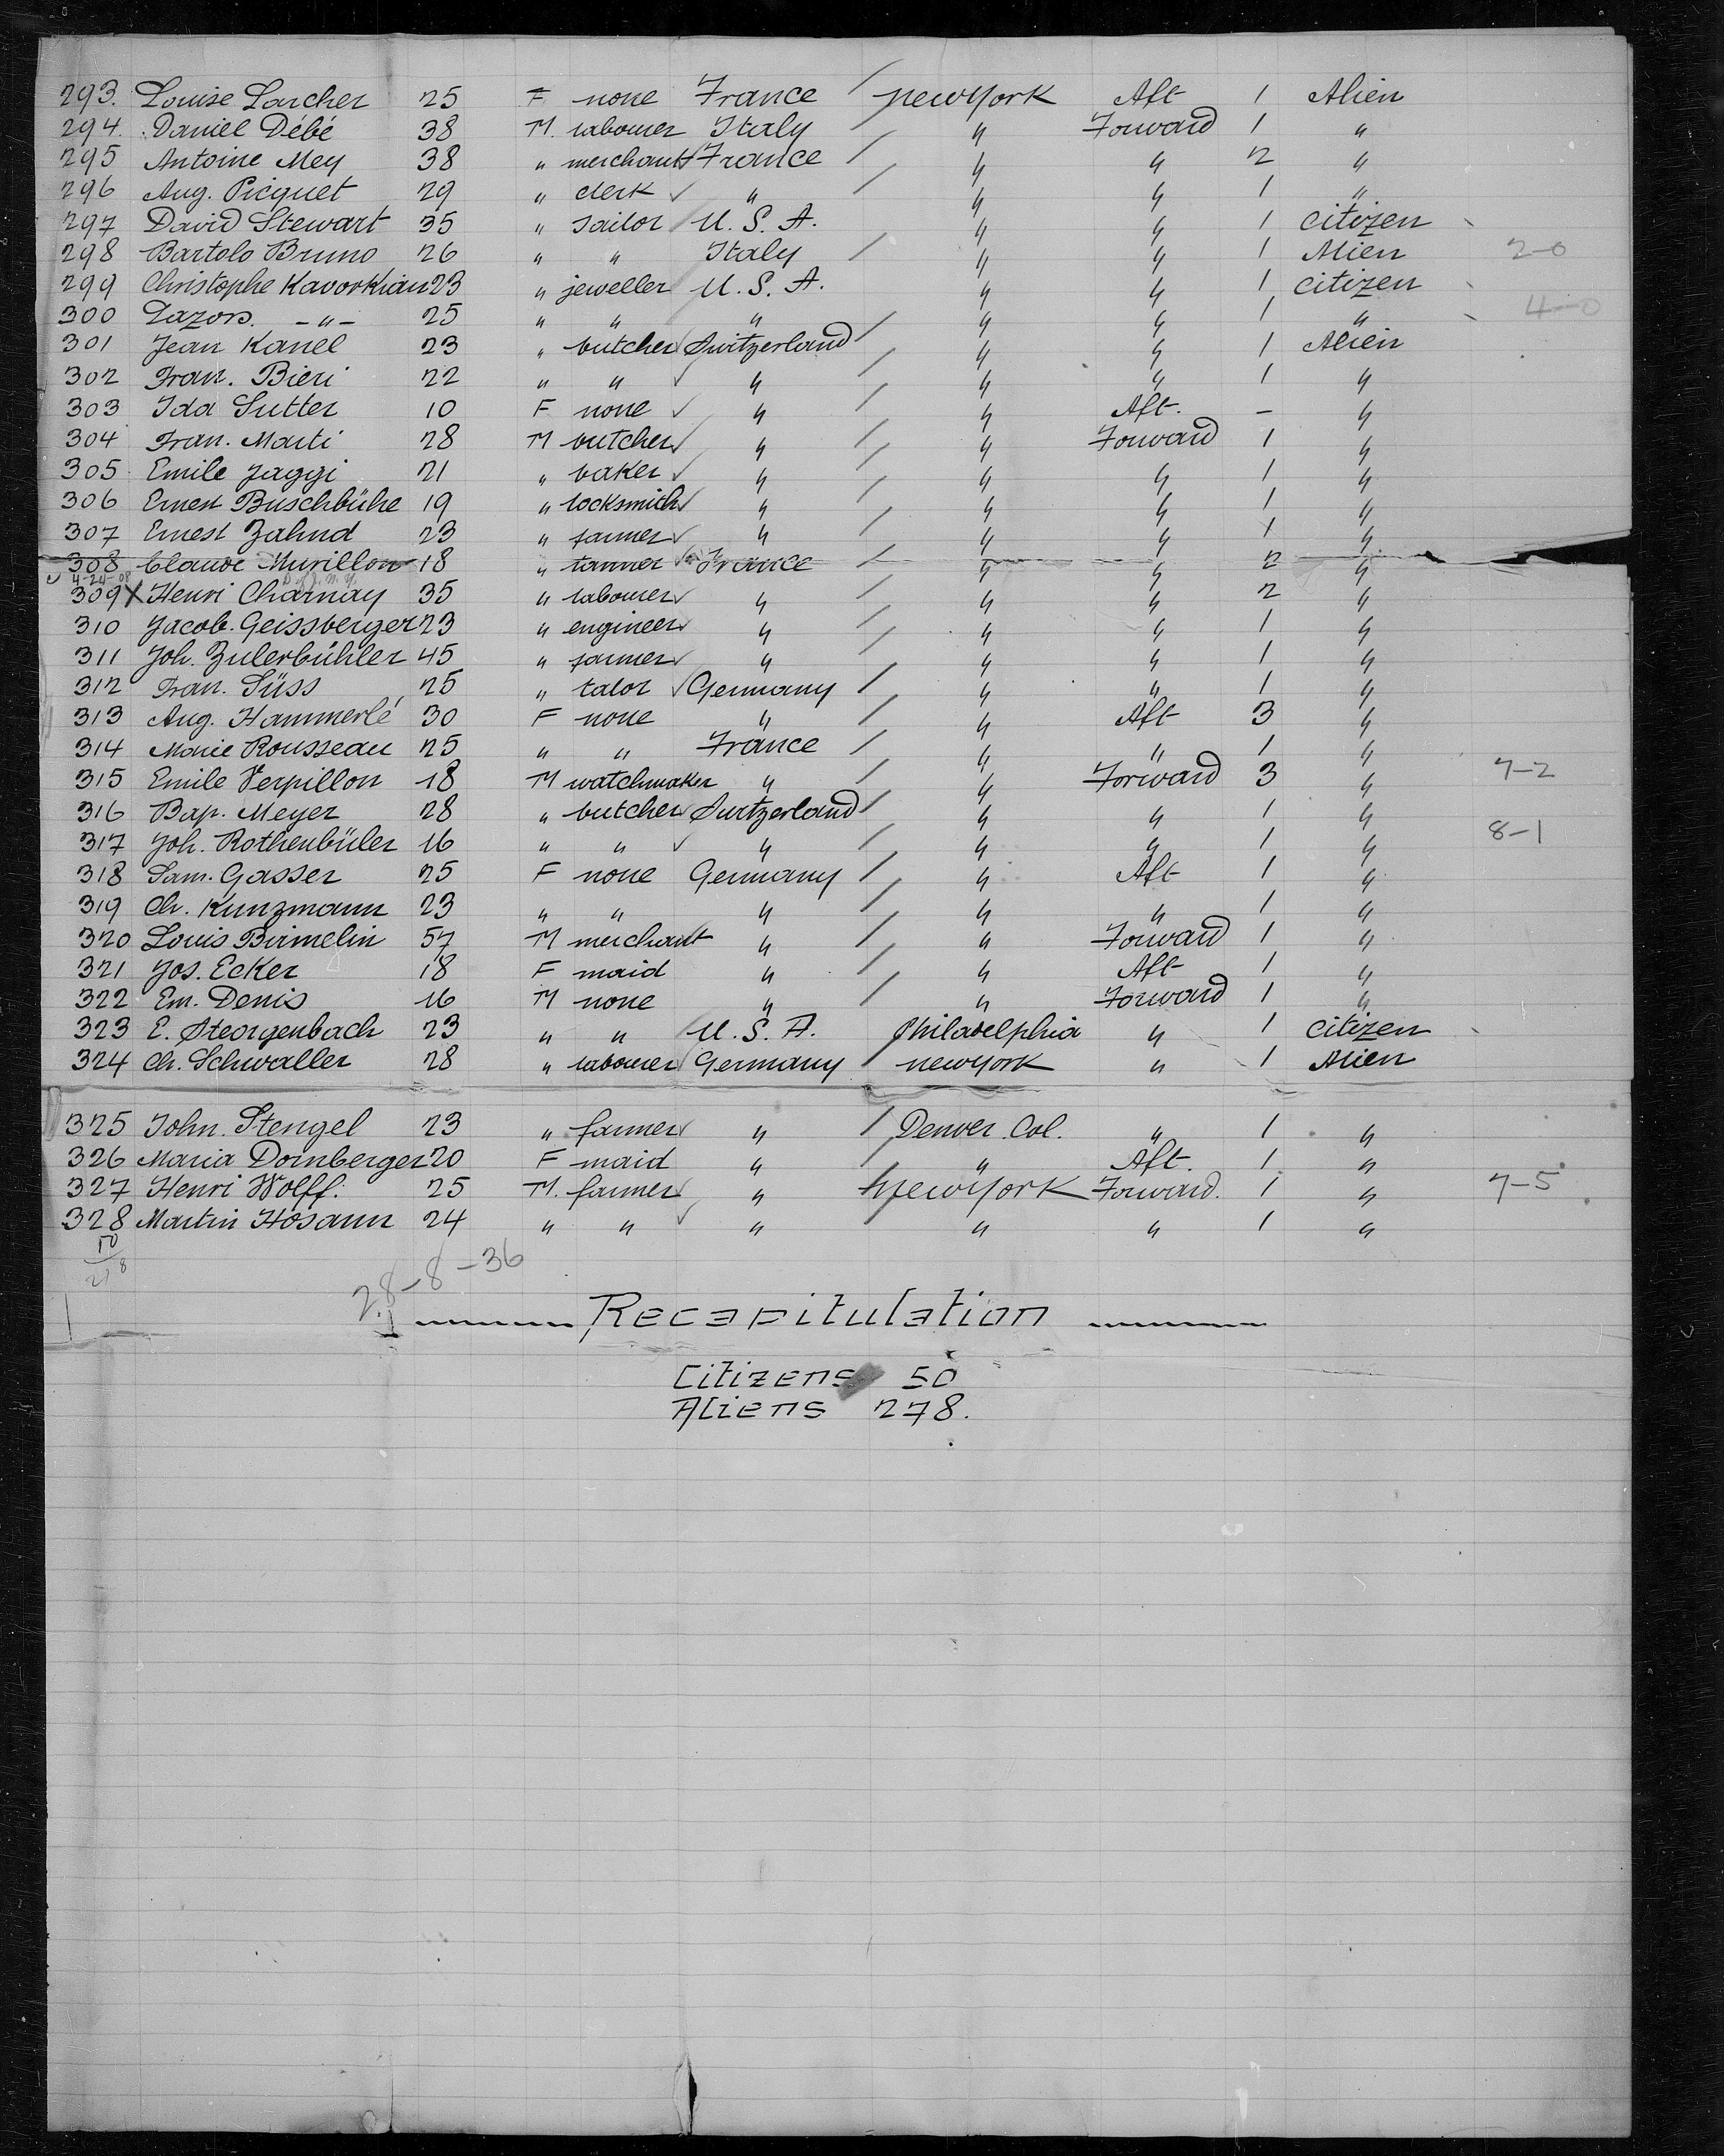 293. Louise Larcher 25 F none France / New York Aft 1 Alien
294. Daniel Débé 38 M. labourer Italy / " Forward 1 "
295 Antoine Mey 38 " merchant France / " " 2 "
296 Aug. Picquet 29 " clerk " / " " 1 "
297 David Stewart 35 " sailor U. S. A. " " 1 citizen
298 Bartolo Bruno 26 " " Italy / " " 1 Alien 2-0
299 Christophe Kavorkian 23 " jeweller U. S. A. " " 1 citizen
300 Lazors. -"- 25 " " " " " 1 " 4-0
301 Jean Kanel 23 " butcher Switzerland / " " 1 Alien
302 Fran. Bieri 22 " " " / " " 1 "
303 Ida Sutter 10 F none " / " Aft. - "
304 Fran. Marti 28 M butcher " / " Forward 1 "
305 Emile Jaggi 21 " baker " / " " 1 "
306 Ernest Buschbühe 19 " locksmith " / " " 1 "
307 Ernest Zahnd 23 " farmer " / " " 1 "
308 Claude Murillon 18 " tanner France / " " 2 "
4-24-08
309 X Henri Charnay 35 " labourer " / " " 2 "
310 Jacob. Geissberger 23 " engineer " / " " 1 "
311 Joh. Zulerbühler 45 " farmer " / " " 1 "
312 Fran. Süss 25 " talor Germany / " " 1 "
313 Aug. Hammerlé 30 F none " / " Aft 3 "
314 Marie Rousseau 25 " " France / " " 1 "
315 Emile Verpillon 18 M watchmaker " / " Forward 3 " 7-2
316 Bap. Meyer 28 " butcher Switzerland / " " 1 "
317 Joh. Rothenbüler 16 " " " / " " 1 " 8-1
318 Sam. Gasser 25 F none Germany / " Aft 1 "
319 Ch. Kunzmann 23 " " " / " " 1 "
320 Louis Birmelin 57 M merchant " / " Forward 1 "
321 Jos. Ecker 18 F maid " / " Aft 1 "
322 Em. Denis 16 M none " / " Forward 1 "
323 E. Steorgenbach 23 " " U. S. A. Philadelphia " 1 citizen
324 Ch. Schwaller 28 " labourer Germany / New York " 1 Alien
325 John. Stengel 23 " farmer " / Denver. Col. " 1 "
326 Maria Dornberger 20 F maid " / " Aft. 1 "
327 Henri Wolff. 25 M. farmer " / New York Forward. 1 " 7-5
328 Martin Hosann 24 " " " / " " 1 "
50
278
28-8-36
Recapitulation
Citizens 50
Aliens 278.